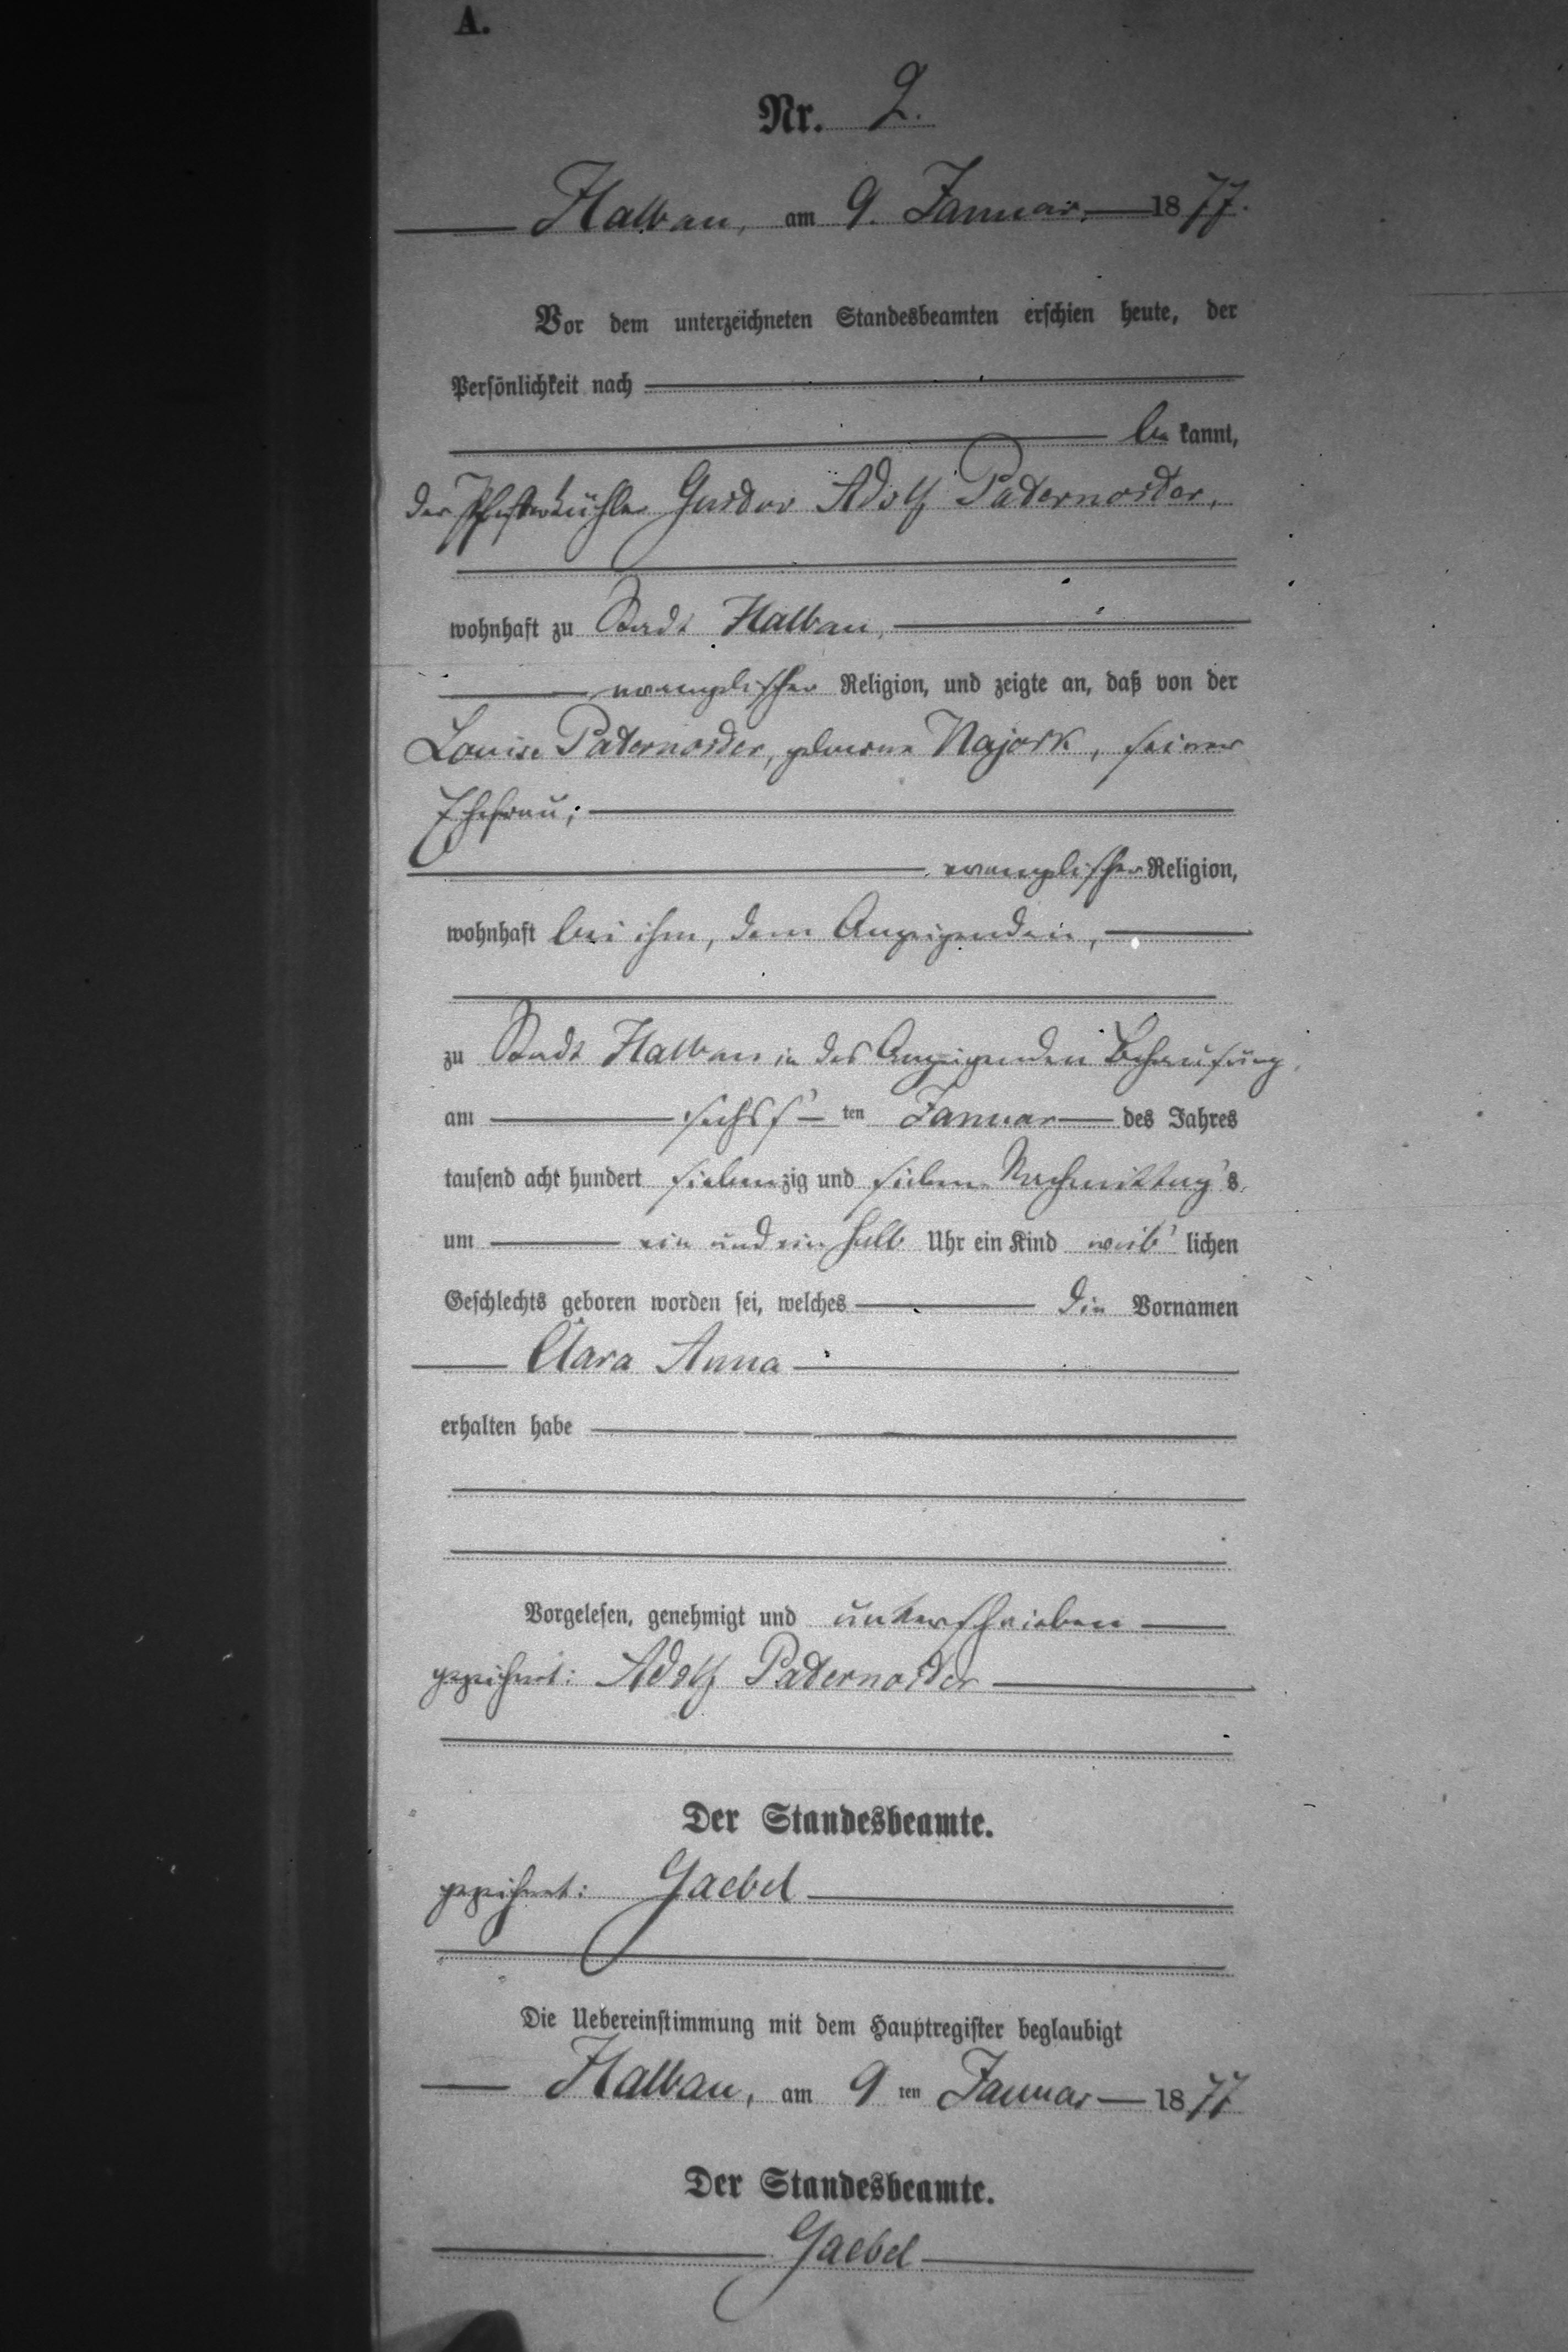 A.
Nr. 2.
Halbau, am 9. Januar 1877.
Vor dem unterzeichneten Standesbeamten erschien heute, der
Persönlichkeit nach
be kannt,
der Gustav Adolf Paternoster,
wohnhaft zu Stadt Halbau,
evangelischer Religion, und zeigte an, daß von der
Louise Paternoster, geborene Najork, seiner
Ehefrau;
evangelischer Religion,
wohnhaft bei ihm, dem Anzeigenden,
zu Stadt Halbau in des Anzeigenden Behausung,
am sechs ten Januar des Jahres
tausend acht hundert sieben zig und sieben Nachmittag's
um ein und ein halb Uhr ein Kind weib lichen
Geschlechts geboren worden sei, welches die Vornamen
Clara Anna
erhalten habe
Vorgelesen, genehmigt und unterschrieben
gezeichnet: Adolf Paternoster
Der Standesbeamte.
gezeichnet: Gaebel
Die Uebereinstimmung mit dem Hauptregister beglaubigt
Halbau, am 9 ten Januar 1877
Der Standesbeamte.
Gaebel